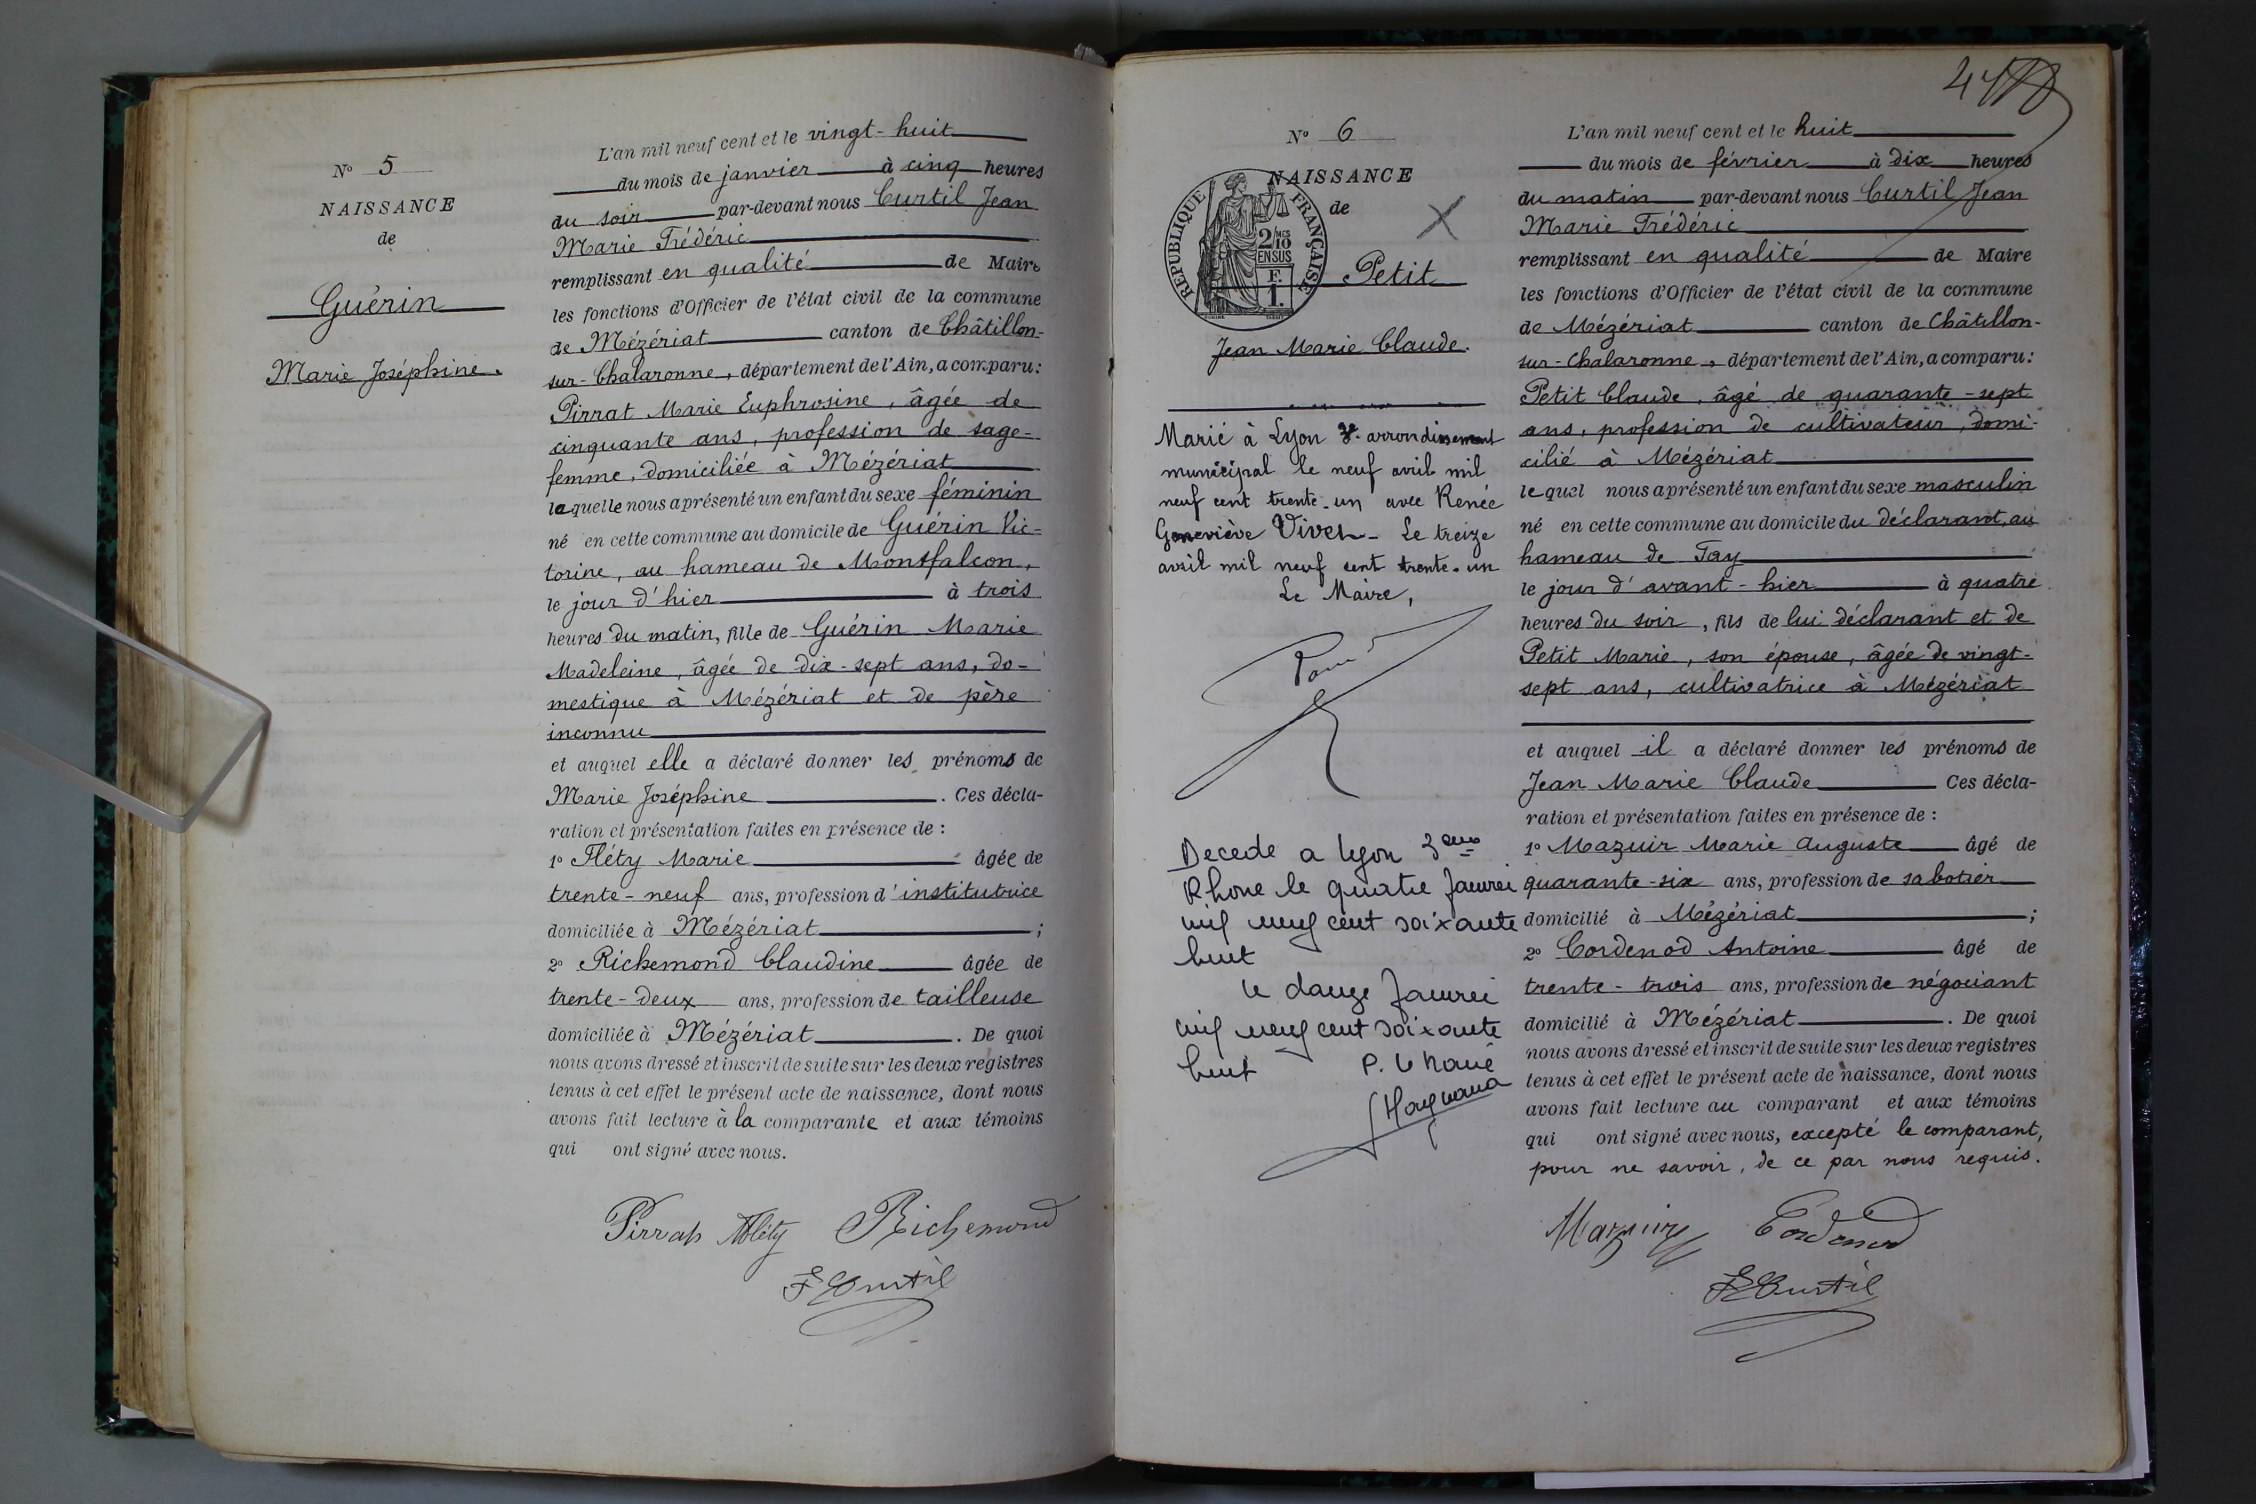 N° 5
NAISSANCE
de
Guérin
Marie Joséphine.
L'an mil neuf cent et le vingt-huit
du mois de janvier à cinq heures
du soir par-devant nous Curtil Jean
Marie Frédéric
remplissant en qualité de Maire
les fonctions d'Officier de l'état civil de la commune
de Mézériat canton de Châtillon-
sur-Chalaronne, département de l'Ain, a comparu:
Pirrat Marie Euphrosine, âgée de
cinquante ans, profession de sage-
femme, domiciliée à Mézériat
laquelle nous a présenté un enfant du sexe féminin
né en cette commune au domicile de Guérin Vic-
torine, au hameau de Montfalcon,
le jour d'hier à trois
heures du matin, fille de Guérin Marie
Madeleine, âgée de dix-sept ans, do-
mestique à Mézériat et de père
inconnu
et auquel elle a déclaré donner les prénoms de
Marie Joséphine. Ces décla-
ration et présentation faites en présence de:
1° Fléty Marie âgée de
trente-neuf ans, profession d'institutrice
domiciliée à Mézériat;
2° Richemond Claudine âgée de
trente-deux ans, profession de tailleuse
domiciliée à Mézériat. De quoi
nous avons dressé et inscrit de suite sur les deux registres
tenus à cet effet le présent acte de naissance, dont nous
avons fait lecture à la comparante et aux témoins
qui ont signé avec nous.
Pirrat Fléty Richemond
F Curtil
N° 6
NAISSANCE
de
RÉPUBLIQUE FRANÇAISE
2/10 MES
EN SUS
F.
1.
Petit
Jean Marie Claude.
Marié à Lyon arrondissement
municipal le neuf avril mil
neuf cent trente-un avec Renée
Geneviève Vives - Le treize
avril mil neuf cent trente-un
Le Maire,
Decede a Lyon 3eme
Rhone le quatre Janvier
mil neuf cent soixante
huit
le douze Janvier
mil neuf cent soixante
huit P. le Maire
L'an mil neuf cent et le huit
du mois de février à dix heures
du matin par-devant nous Curtil Jean
Marie Frédéric
remplissant en qualité de Maire
les fonctions d'Officier de l'état civil de la commune
de Mézériat canton de Châtillon-
sur-Chalaronne, département de l'Ain, a comparu:
Petit Claude, âgé de quarante-sept
ans, profession de cultivateur, domi-
cilié à Mézériat
lequel nous a présenté un enfant du sexe masculin
né en cette commune au domicile du déclarant, au
hameau de Tay
le jour d'avant-hier à quatre
heures du soir, fils de lui déclarant et de
Petit Marie, son épouse, âgée de vingt-
sept ans, cultivatrice à Mézériat
et auquel il a déclaré donner les prénoms de
Jean Marie Claude Ces décla-
ration et présentation faites en présence de:
1° Mazuir Marie Auguste âgé de
quarante-six ans, profession de sabotier
domicilié à Mézériat;
2° Cordenod Antoine âgé de
trente-trois ans, profession de négociant
domicilié à Mézériat. De quoi
nous avons dressé et inscrit de suite sur les deux registres
tenus à cet effet le présent acte de naissance, dont nous
avons fait lecture au comparant et aux témoins
qui ont signé avec nous, excepté le comparant,
pour ne savoir, de ce par nous requis.
Mazuir Cordenod
F Curtil